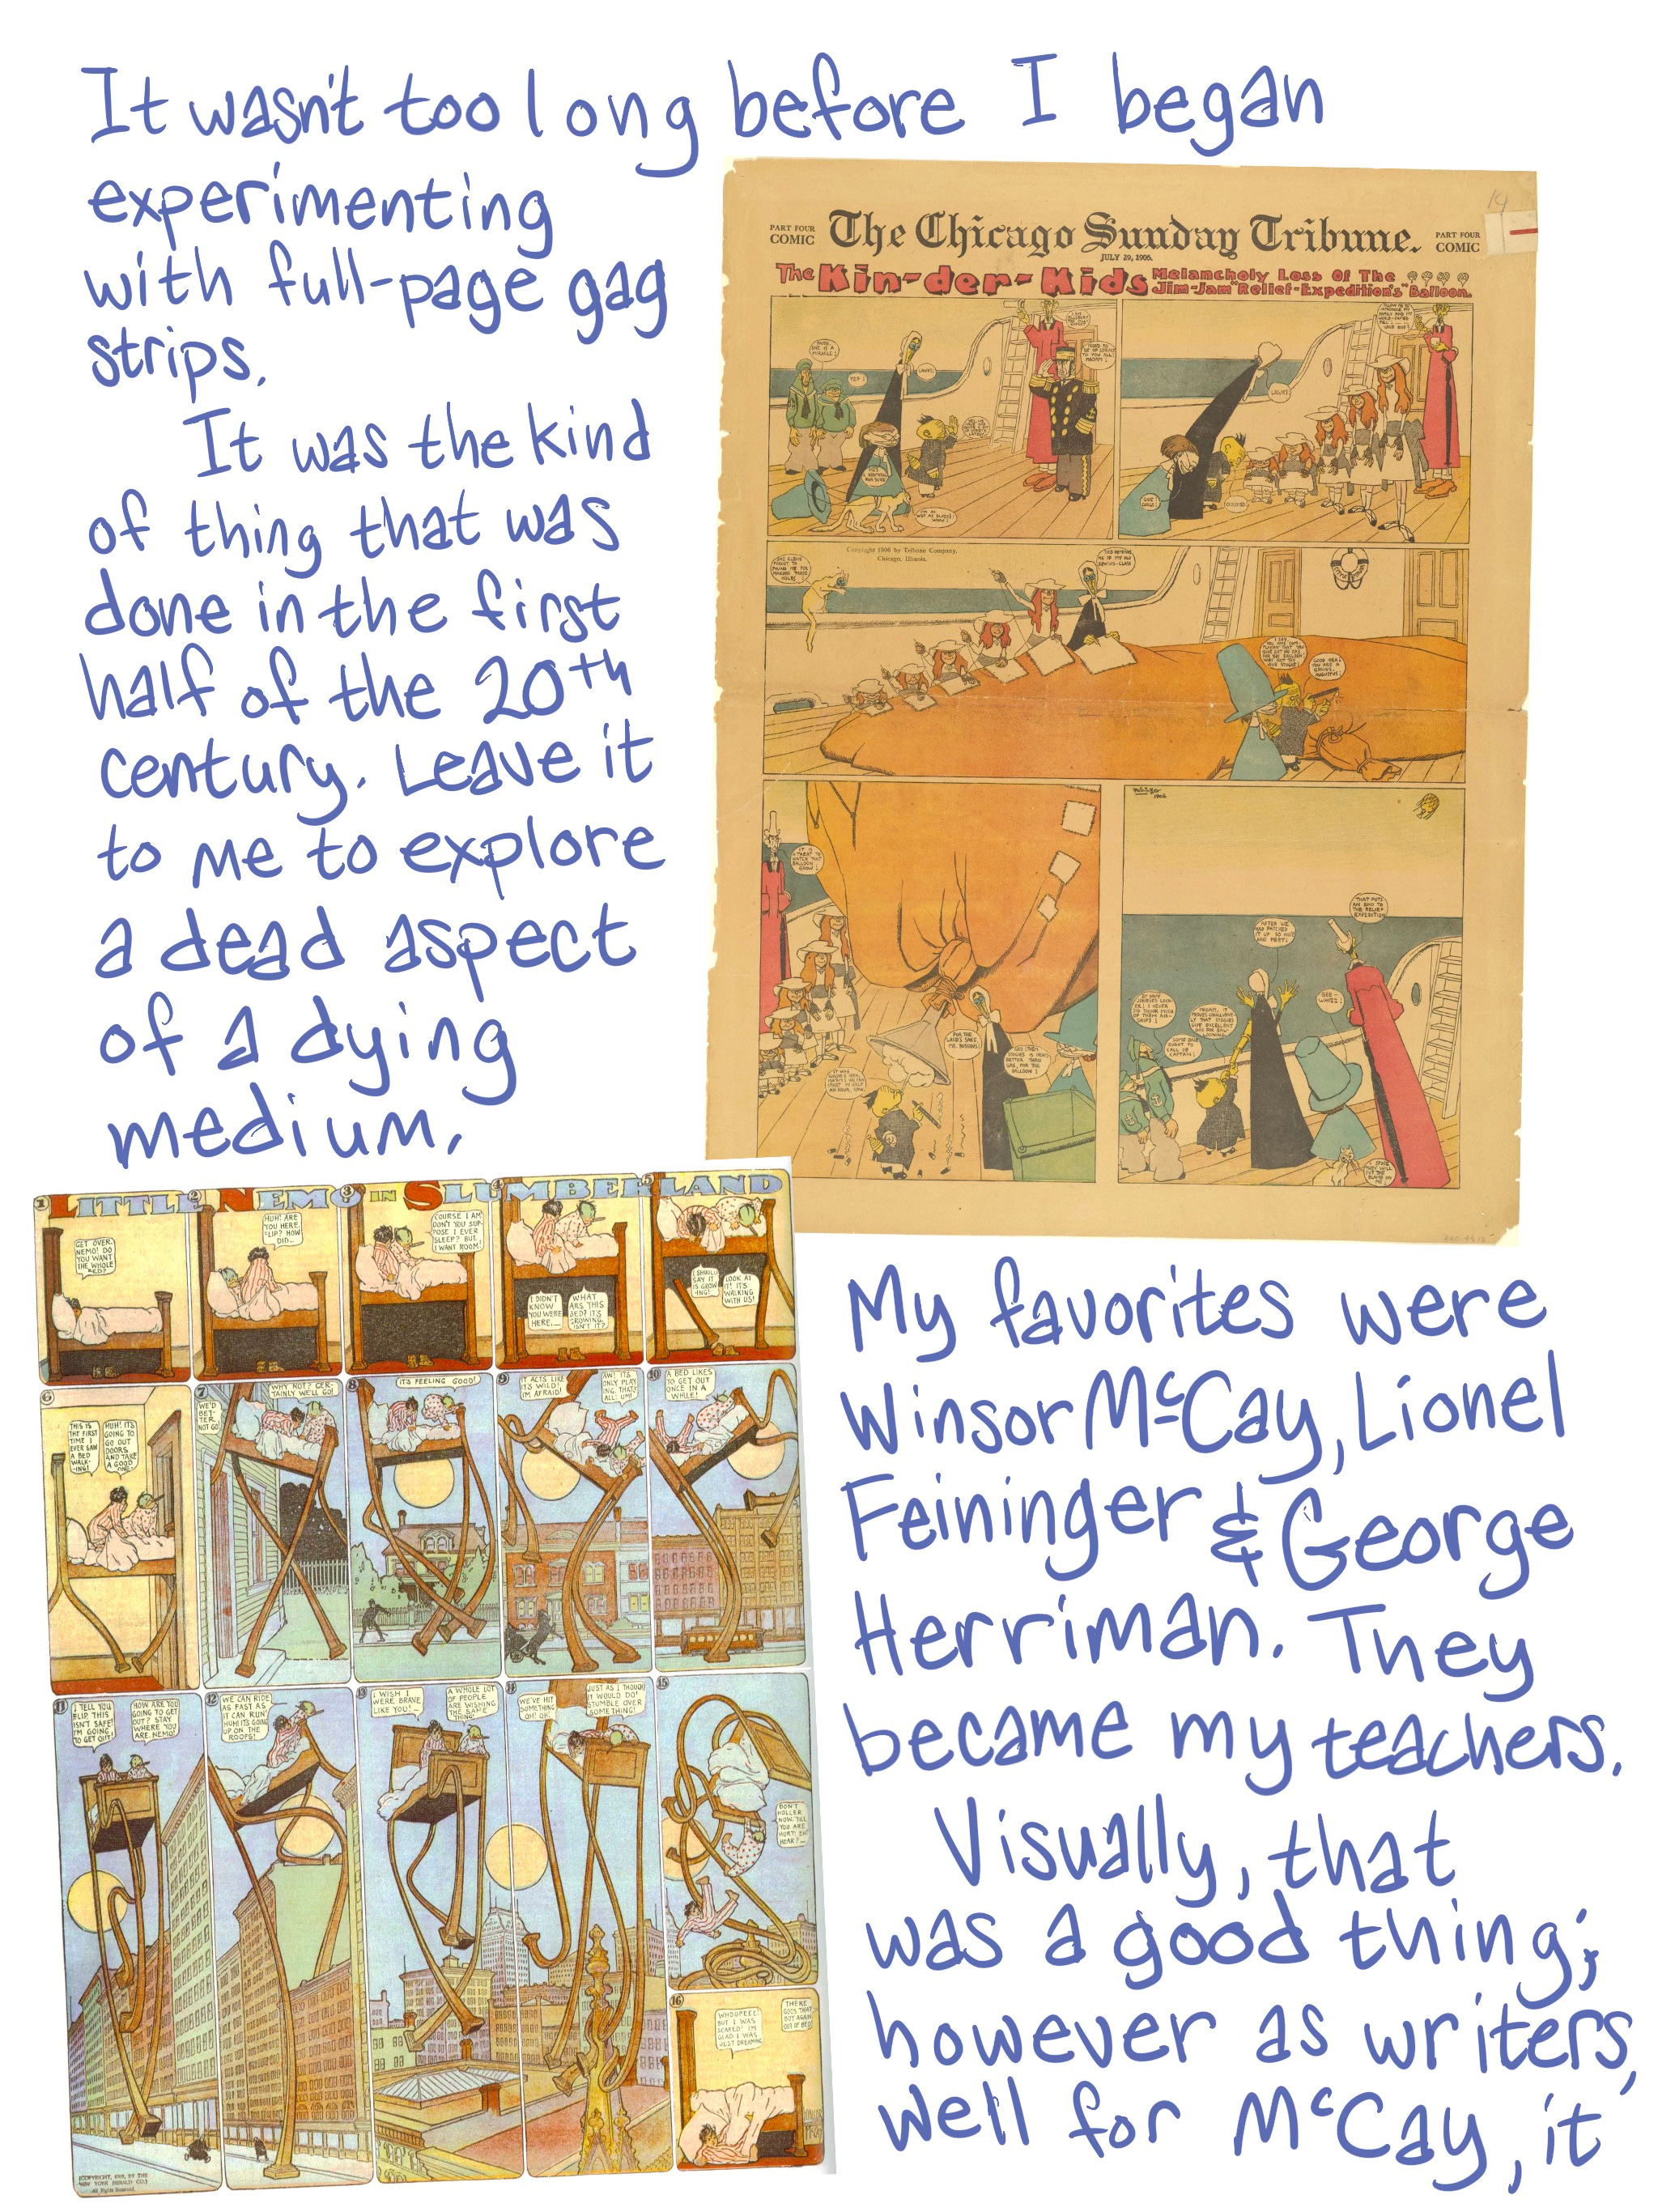 It wasn't too long before I began
experimenting
with full-page gag
strips.
It was the kind
of thing that was
done in the first
half of the 20th
century. Leave it
to me to explore
a dead aspect
of a dying
medium.
PART FOUR
COMIC
The Chicago Sunday Tribune.
PART FOUR
COMIC
JULY 29, 1906.
The Kin-der-Kids
Melancholy Loss Of The
Jim-Jam "Relief-Expedition's" Balloon.
YEP!
Copyright 1906 by Tribune Company,
Chicago, Illinois.
GOOD IDEA!
YOU ARE A
GENIUS,
AUGUSTUS!
IT IS
A TREAT TO
WATCH THAT
BALLOON
GROW!
FOR THE
LAND'S SAKE,
MR. BUGGINS!
AFTER WE
HAD PATCHED
IT UP SO NICE
AND PERT!
THAT PUTS
AN END TO
THE RELIEF
EXPEDITION
GEE-
WHIZZ!
LITTLE NEMO IN SLUMBERLAND
1
GET OVER,
NEMO! DO
YOU WANT
THE WHOLE
BED?
2
HUH! ARE
YOU HERE
FLIP? HOW
DID—
3
COURSE I AM!
DON'T YOU SUP-
POSE I EVER
SLEEP? BUT,
I WANT ROOM!
4
I DIDN'T
KNOW
YOU WERE
HERE,—
WHAT
ARS THIS
BED? IT'S
GROWING,
ISN'T IT?
5
I SHOULD
SAY IT
IS GROW
-ING!
LOOK AT
IT! IT'S
WALKING
WITH US!
6
THIS IS
THE FIRST
TIME I
EVER SAW
A BED
WALK-
-ING!
HUH! IT'S
GOING TO
GO OUT
DOORS
AND TAKE
A GOOD
ONE.
7
WE'D
BET-
TER
NOT GO!
WHY NOT? CER-
TAINLY WE'LL GO!
8
IT'S FEELING GOOD!
9
IT ACTS LIKE
IT'S WILD!
I'M AFRAID!
AW! IT'S
ONLY PLAY
ING. THAT'S
ALL. UM!
10
A BED LIKES
TO GET OUT
ONCE IN A
WHILE!
11
I TELL YOU
FLIP, THIS
ISN'T SAFE!
I'M GOING
TO GET OUT!
HOW ARE YOU
GOING TO GET
OUT? STAY
WHERE YOU
ARE, NEMO!
12
WE CAN RIDE
AS FAST AS
IT CAN RUN!
HUM! IT'S GOING
UP ON THE
ROOFS!
13
I WISH I
WERE BRAVE
LIKE YOU!—
A WHOLE LOT
OF PEOPLE
ARE WISHING
THE SAME
THING!
14
WE'VE HIT
SOMETHING
OH! OH!
JUST AS I THOUGH
IT WOULD DO!
STUMBLE OVER
SOMETHING!
15
DON'T
HOLLER
NOW. 'TILL
YOU ARE
HURT! EH!
HEAR?—
16
WHOOPEEE!
BUT I WAS
SCARED! I'M
GLAD I WAS
JUST DREAMING
THERE
GOES THAT
BOY AGAIN
OUT OF BED!
(COPYRIGHT, 1908, BY THE
NEW YORK HERALD CO.)
All Rights Reserved.
My favorites were
Winsor McCay, Lionel
Feininger & George
Herriman. They
became my teachers.
Visually, that
was a good thing;
however as writers,
well for McCay, it